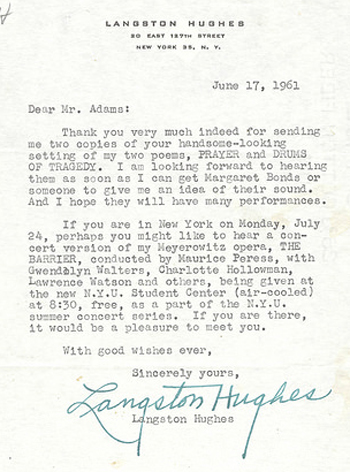 LANGSTON HUGHES
20 EAST 127th STREET
NEW YORK 35, N. Y.
June 17, 1961
Dear Mr. Adams:
Thank you very much indeed for sending
me two copies of your handsome-looking
setting of my two poems, PRAYER and DRUMS
OF TRAGEDY. I am looking forward to hearing
them as soon as I can get Margaret Bonds or
someone to give me an idea of their sound.
And I hope they will have many performances.
If you are in New York on Monday, July
24, perhaps you might like to hear a con-
cert version of my Meyerowitz opera, THE
BARRIER, conducted by Maurice Peress, with
Gwendolyn Walters, Charlotte Hollowman,
Lawrence Watson and others, being given at
the new N.Y.U. Student Center (air-cooled)
at 8:30, free, as a part of the N.Y.U.
summer concert series. If you are there,
it would be a pleasure to meet you.
With good wishes ever,
Sincerely yours,
Langston Hughes
Langston Hughes